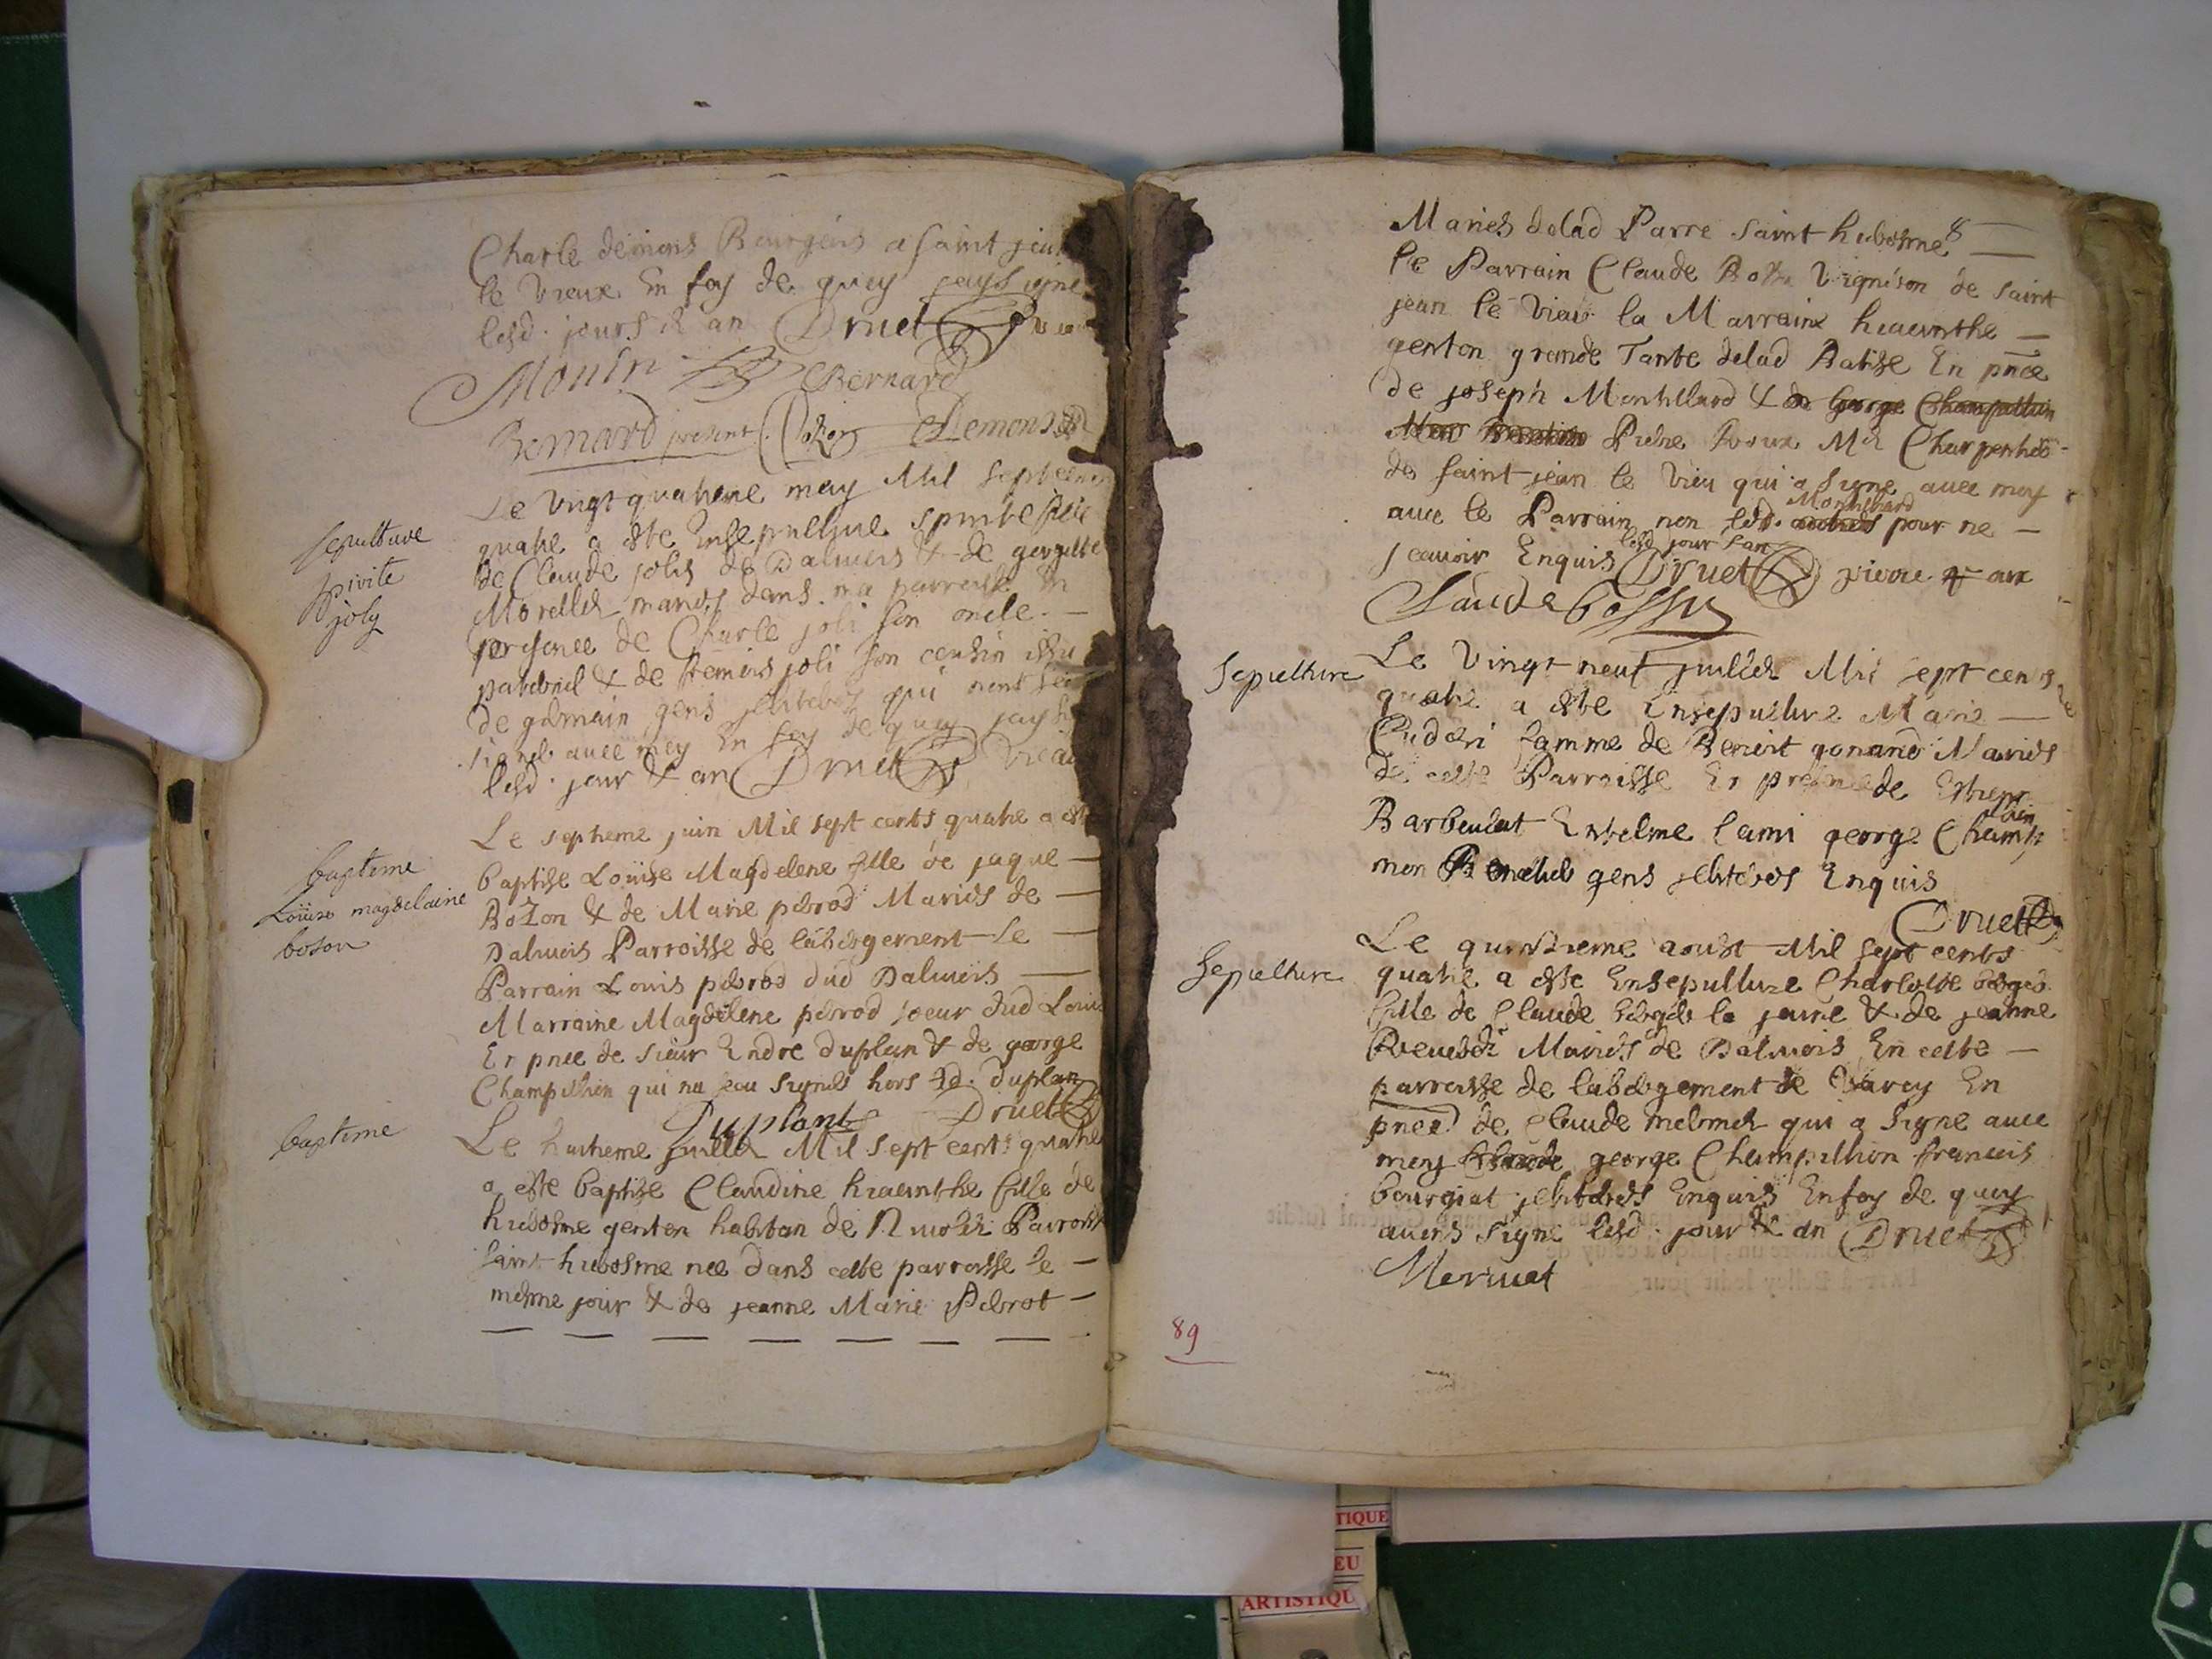 Charle demons Bourgeois a saint jean
le vieux En foy de quoy jay signe
lesd. jours & an Druet vicai
Monin Bernard
Bernard present Bozon Demons
sepulture
pivite
joly
Le vingt quatrieme may Mil sept cents
quatre a este Ensepulture spirite fille
de Claude jolis de Dalivois & de
Morellet maries dans ma parroisse En
presence de Charle joli son oncle
paternel & de joli son cousin issu
de germain gens qui nont
signe avec moy En foy de quoy jay
lesd. jour & an Druet vicai
baptême
Loüise magdelaine
boson
Le septieme juin Mil sept cents quatre a este
baptize Loüise Magdelene fille de jaque
Bozon & de Marie perrod Maries de
Dalivois Parroisse de labergement le
Parrain Louis perrod dud Dalivois
Marraine Magdelene perrod soeur dud Louis
En pnce de sieur Endre duplan & de george
Champillion qui na sceu signer hors led. duplan
Duplant Druet
baptême
Le huitieme juillet Mil sept cents quatre
a este baptize Claudine hiacinthe fille de
hierosme genton habitan de Parroisse
saint hierosme nee dans cette parroisse le
mesme jour & de jeanne Marie Perrot
8
Maries delad Parre saint hierosme
le Parrain Claude Bossu vigneron de saint
jean le vieu la Marraine hiacinthe
genton grande Tante delad Batize En pnce
de joseph Montillard & de George Champillion
Pierre Roux Me Charpentier
de saint jean le vieu qui a signe avec moy
avec le Parrain non led. Montillard pour ne
scavoir Enquis lesd jour & an Druet pierre roux
Claude bossu
Sepulture
Le vingt neuf juillet Mil sept cents
quatre a este Ensepulture Marie
famme de Benoit gonand Maries
de cette Parroisse En presence de Estienne
Barbeulat Entelme lami george Champillion
mon gens illiteres Enquis
Druet
Sepulture
Le quinzieme aoust Mil sept cents
quatre a este Ensepulture Charlotte berger
fille de Claude berger le jeune & de jeanne
Maries de Dalivois En cette
parroisse de labergement de Varey En
pnce de Claude mermet qui a signe avec
moy george Champillion francois
bourgiat illiteres Enquis En foy de quoy
avons signe lesd. jour & an Druet
Mermet
89
TIQUE
EU
ARTISTIQU